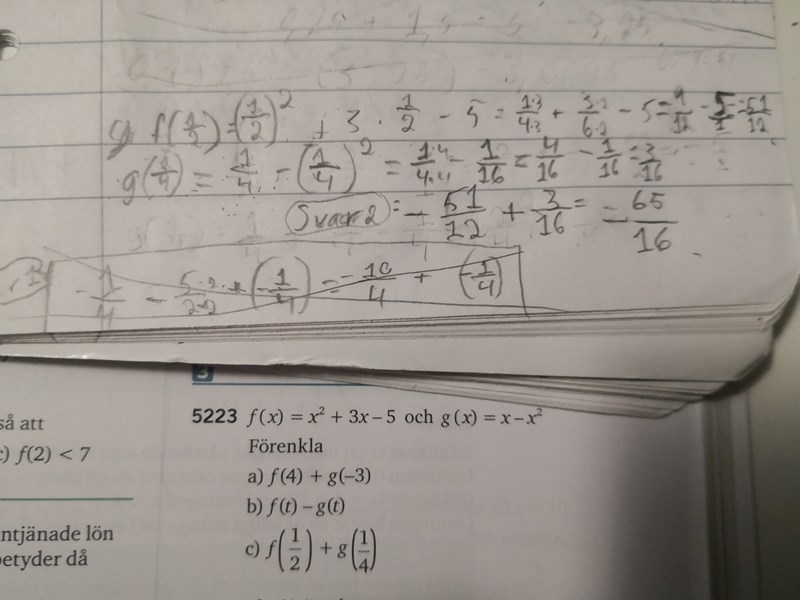 g f(1/2) = (1/2)² + 3 · 1/2 - 5 = 1·3/4·3 + 3·2/6·2 - 5 = 9/12 - 5/1 = 51/12
g(1/4) = 1/4 - (1/4)² = 1·4/4·4 - 1/16 = 4/16 - 1/16 = 3/16
Svar 2: - 51/12 + 3/16 = - 65/16
- 1/4 - 5·2/2·2 (-1/4) = -10/4 + (-1/4)
så att
c) f(2) < 7
ntjänade lön
betyder då
3
5223 f(x) = x² + 3x – 5 och g(x) = x – x²
Förenkla
a) f(4) + g(–3)
b) f(t) – g(t)
c) f(1/2) + g(1/4)